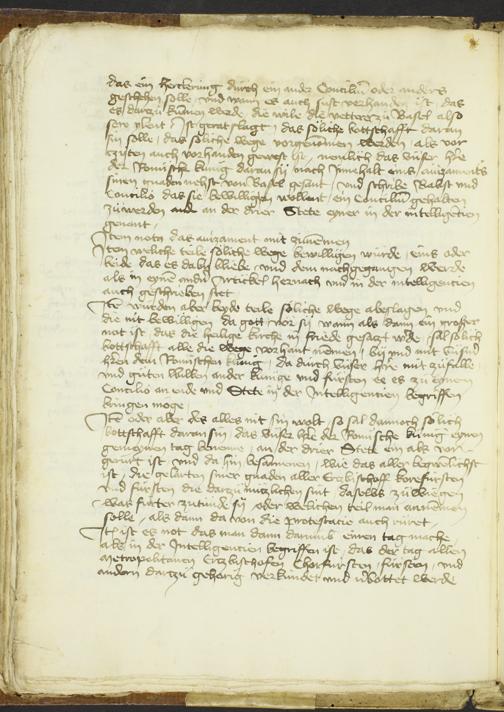 das ein Herkerung durch ein ander Conciliu oder anders
geschehen solle und wann es auch sust verhanden ist das
es darzu kumen werde die wile die vettere zu Basel also
sere ylent Ist geratslagt das soliche bottschafft daran
sin solle das soliche wege vorgenomen werden als vor
zyten auch vorhanden gewest ist nemlich das unser hre
der Romische kunig daran sij nach Innhalt eins avizaments
sinen gnaden nehst von Basel gesant und schribe Babst und
Concilio das sie bewilligen wollent ein Concilium gehalten
zu werden an der drier Stete eyner in der intelligentien
genant
Item nota das avizament mit zunemen
Item welche teile soliche wege bewilligen wurde eins oder
beide das es daby bliebe und dem nachgegangen werde
als in eyme andn Artickel hernach und in der intelligentien
auch geschrieben stet
Ite wurden aber beyde teile soliche wege abeslagen und
die nit bewilligen da gott vor sij wann als dann ein grosser
not ist das die heilige kirche in friede gesatzt wde sal solich
bottschafft alle die wege vorhant nemen by und mit unsm
hren dem Romischen kunig da durch unser hre mit zufalle
und guten willen ander kunige und fursten ee es zu eynem
Concilio an ende und Stete in der Intelligentien begriffen
bringen moge
Ite oder abe des alles nit sin wolt so sal dannoch solich
bottschafft daran sin das unser hre der Romische kunig eynen
gemeynen tag beneme an der drier Stete ein als vor
gerurt ist und da sin besamenen wie das aller begwelichst
ist die gelarten siner gnaden aller Erzbischoff korefursten
und fursten die darzu nutzlichen sint daselbs zu wiegen
was furter zu tunde sij oder welichen teil man annemen
solle als dann da von die protestacie auch ruret
Ite ist es not das man dann darumb einen tag mache
abe in der Intelligentien begriffen ist das der tag allen
metropolitanen Erzbischofen Chorfursten fursten und
andern dartzu gehorig verkundet und ubottet werde